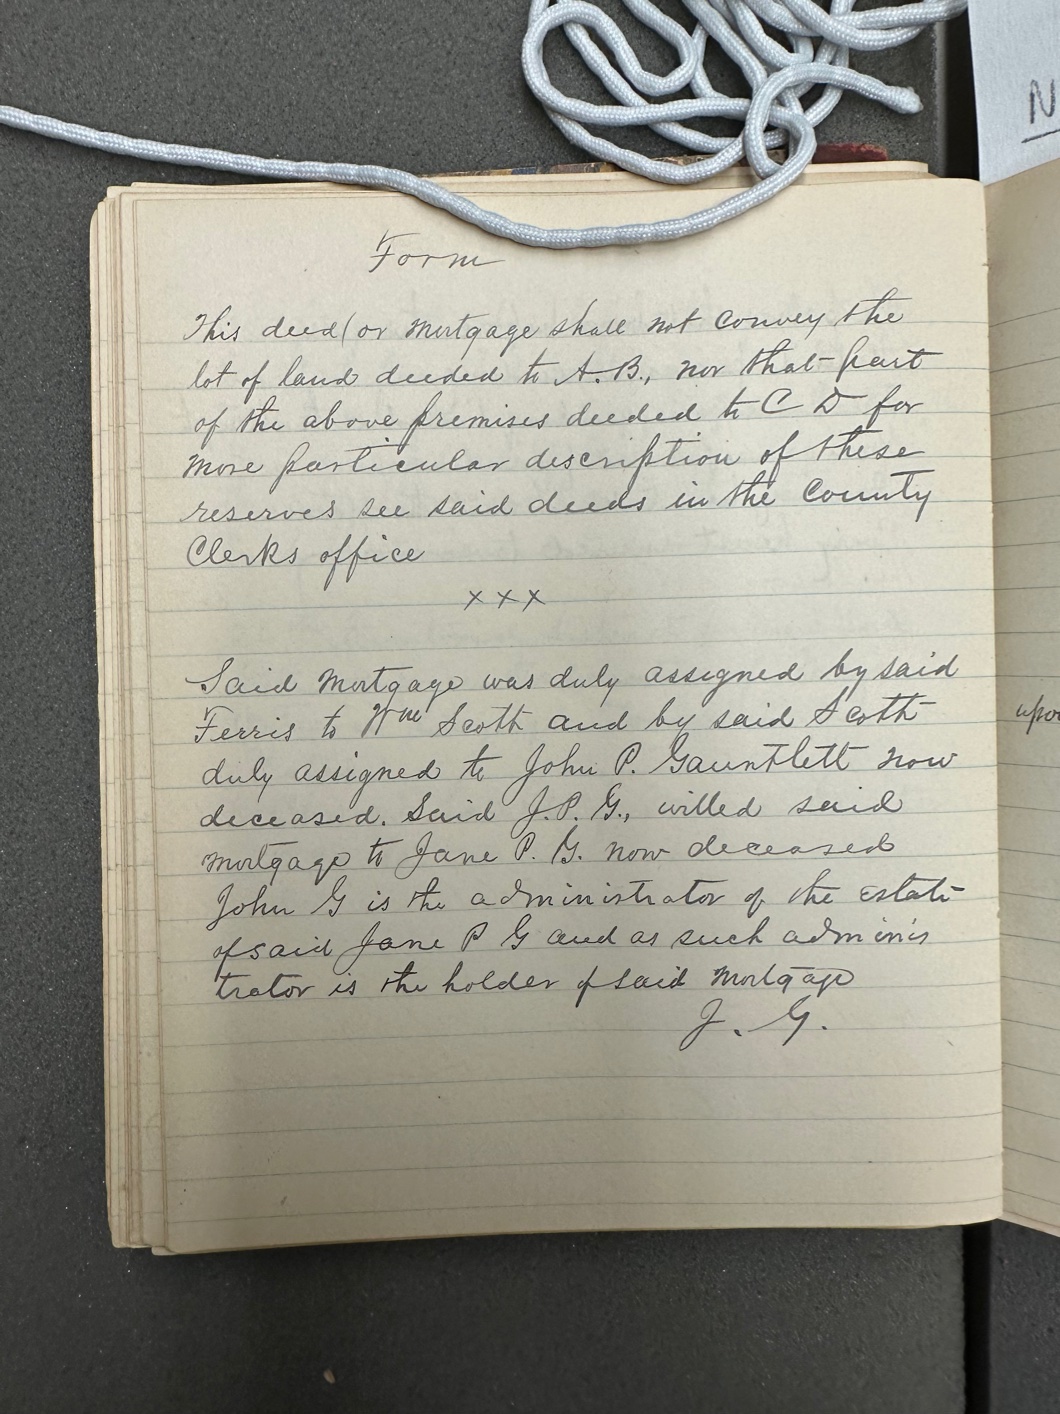 Form
This deed (or mortgage shall not convey the
lot of land deeded to A. B., nor that part
of the above premises deeded to C D for
more particular description of these
reserves see said deeds in the County
Clerks office
x x x
Said Mortgage was duly assigned by said
Ferris to Wm Scott and by said Scott
duly assigned to John P. Gauntlett now
deceased. Said J. P. G., willed said
mortgage to Jane P. G. now deceased
John G is the administrator of the estate
of said Jane P G and as such adminis
trator is the holder of said Mortgage
J. G.
N